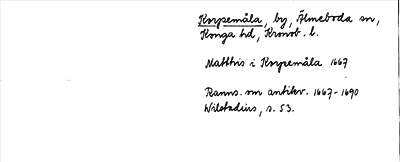 Korpemåla, by, Älmeboda sn,
Konga hd, Kronob. l.
Matthis i Korpemåla 1667
Ranns. om antikv. 1667-1690
Wilstadius, s. 53.